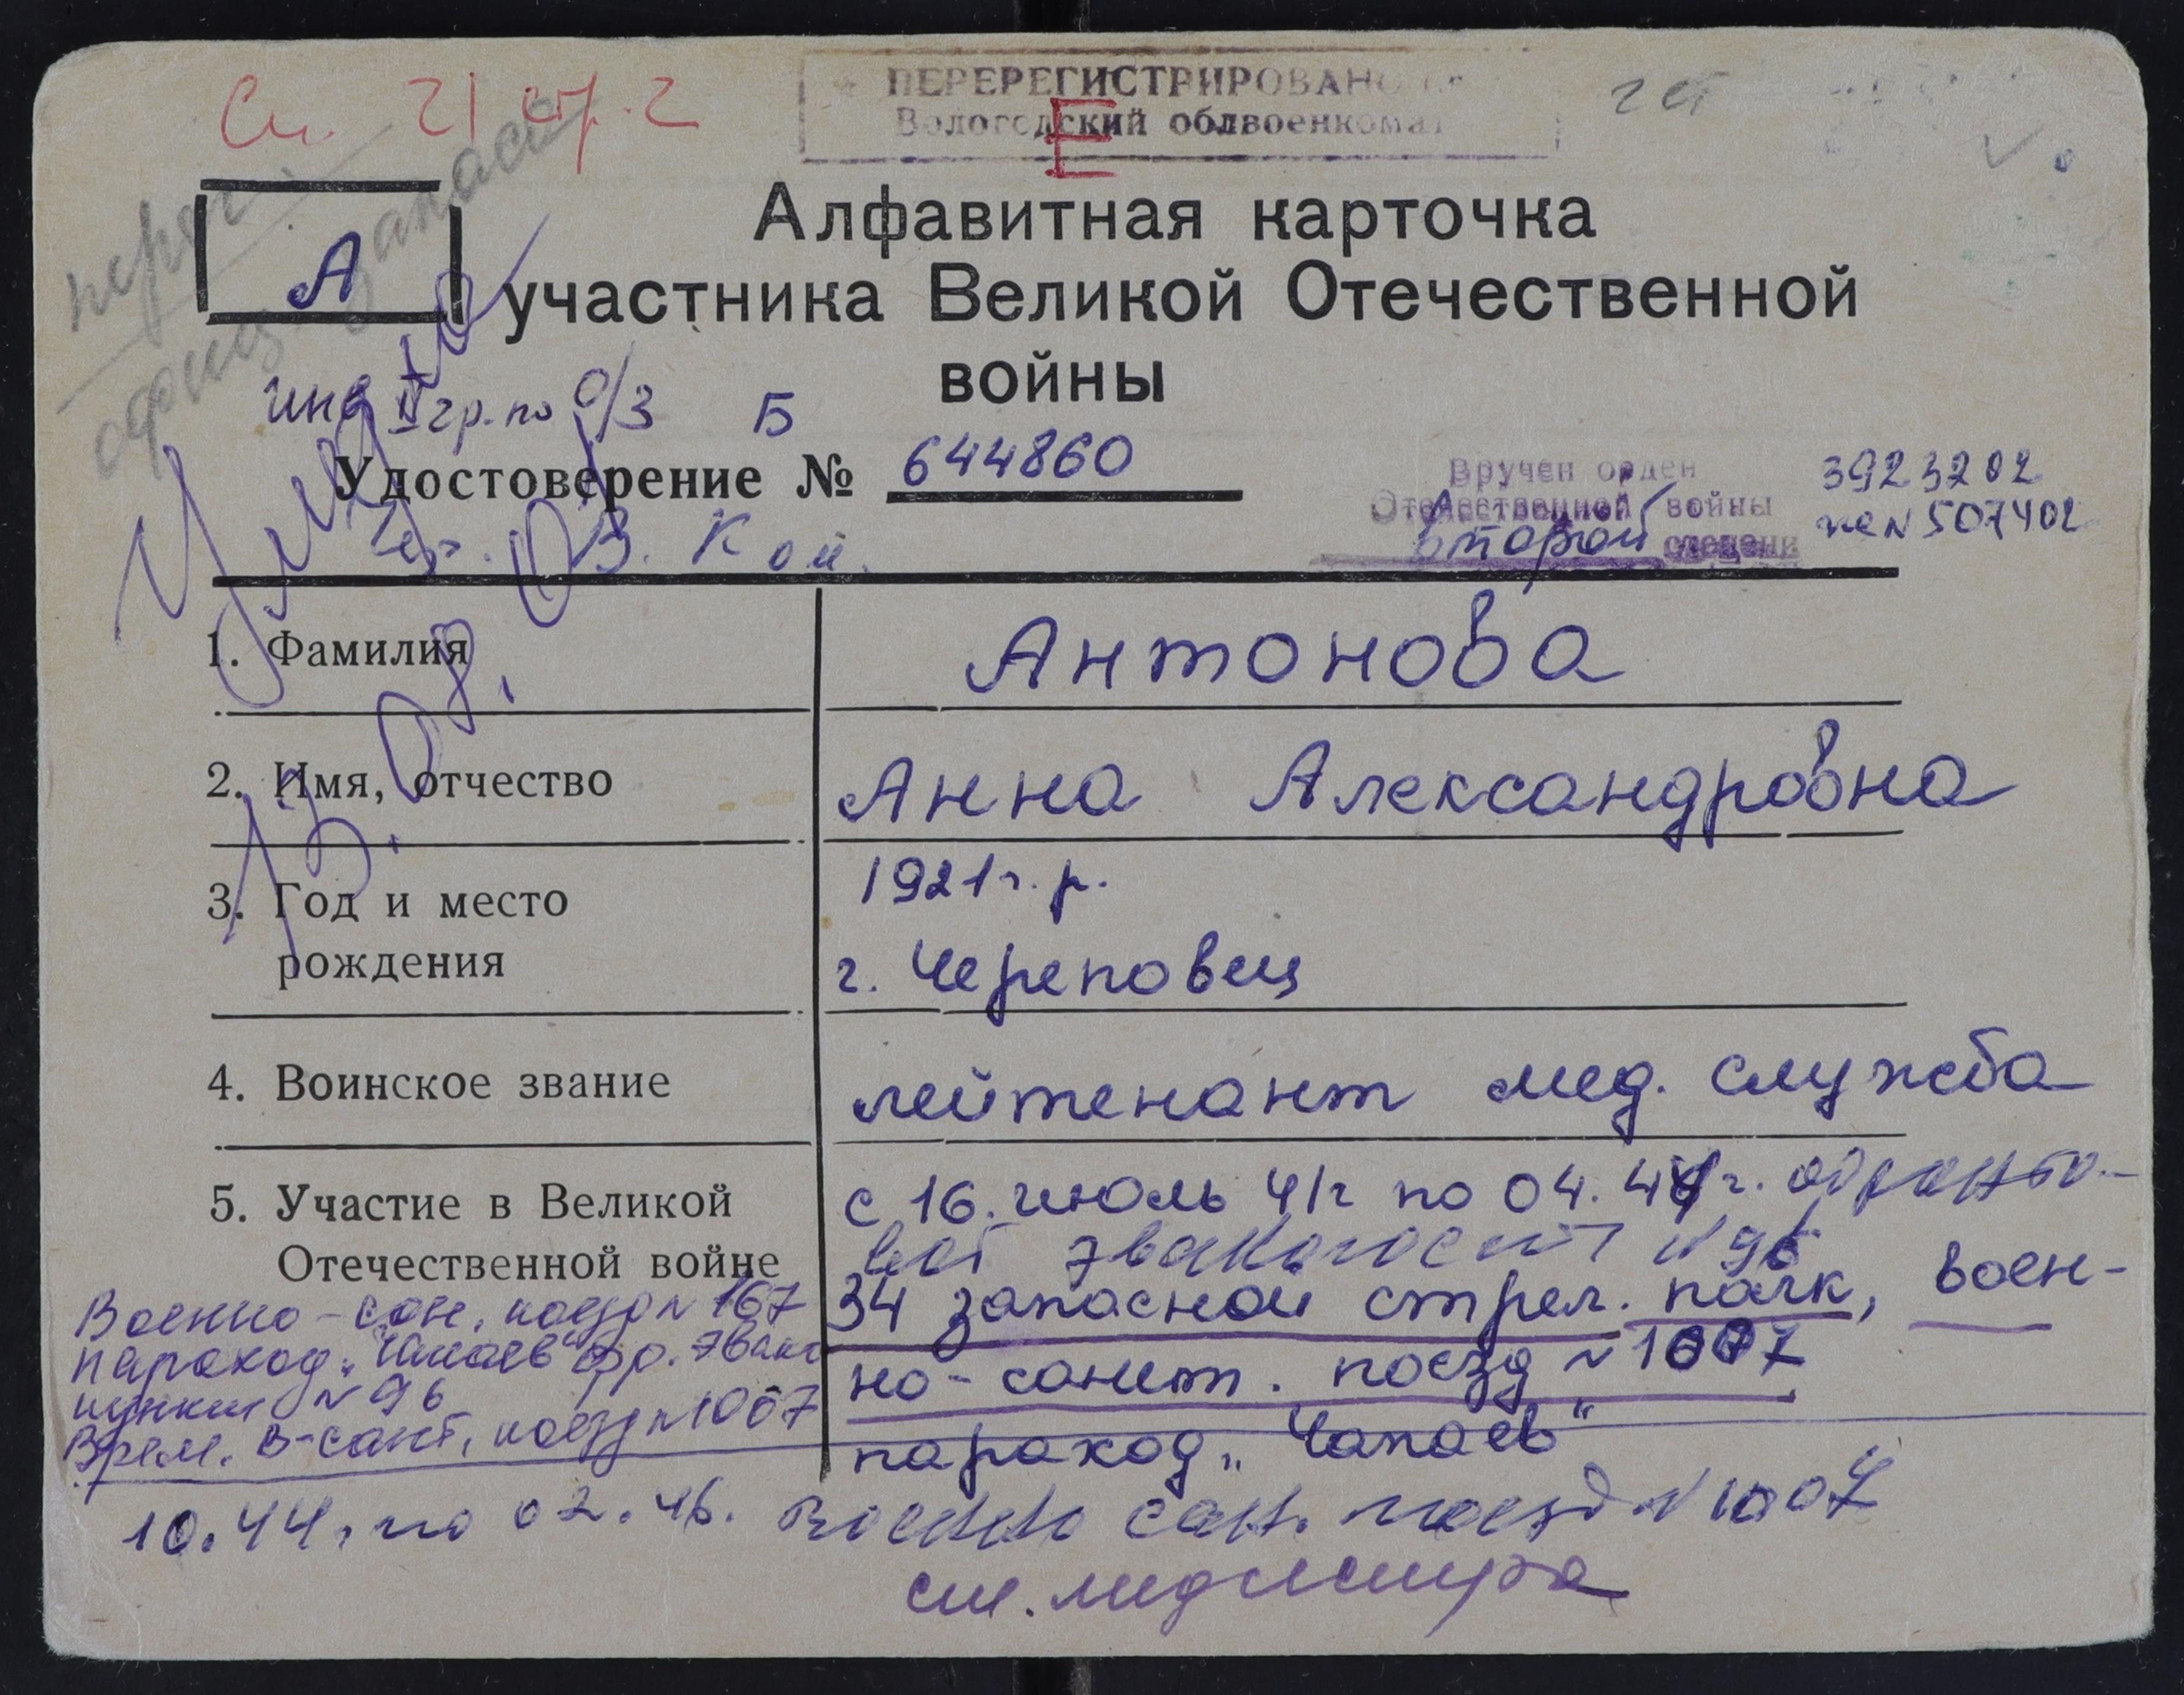 См. 21 стр. 2
ПЕРЕРЕГИСТРИРОВАНО
Вологодский облвоенкомат
Е
офиц. запаса
А
Алфавитная карточка
участника Великой Отечественной
войны
инв II гр. по о/з Б
Удостоверение № 644860
Вручен орден
Отечественной войны
второй степени
3923202
№ 507402
1. Фамилия
Антонова
2. Имя, отчество
Анна Александровна
3. Год и место
рождения
1921 г. р.
г. Череповец
4. Воинское звание
лейтенант мед. служба
5. Участие в Великой
Отечественной войне
с 16. июль 41г по 04. 44г. фронто-
вой эвакогоспит N 96
34 запасной стрел. полк, воен-
но-санит. поезд N 1007
пароход „Чапаев"
Военно-сан. поезд N 167
пароход „Чапаев" фр. эвако
пункт N 96
Врем. в-сант. поезд N 1007
10.44. по 02.46. военно сан. поезд N 1007
ст. медсестра